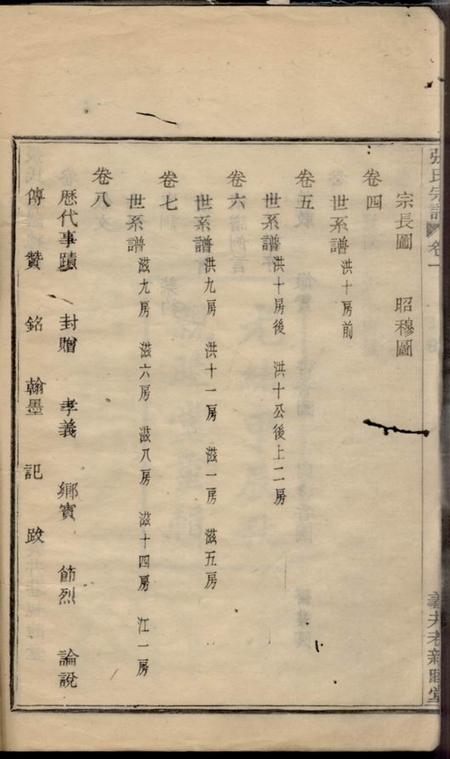 張氏宗譜 卷一
宗長圖 昭穆圖
卷四
世系譜 洪十房前
卷五
世系譜 洪十房後 洪十公後上二房
卷六
世系譜 洪九房 洪十一房 滋一房 滋五房
卷七
世系譜 滋九房 滋六房 滋八房 滋十四房 江一房
卷八
歷代事蹟 封贈 孝義 鄉賓 節烈 論說
傳 贊 銘 翰墨 記 跋